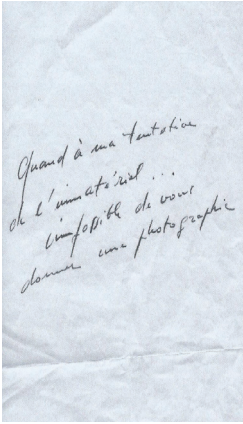 Quand à ma tentative
de l'immatériel...
impossible de vous
donner une photographie